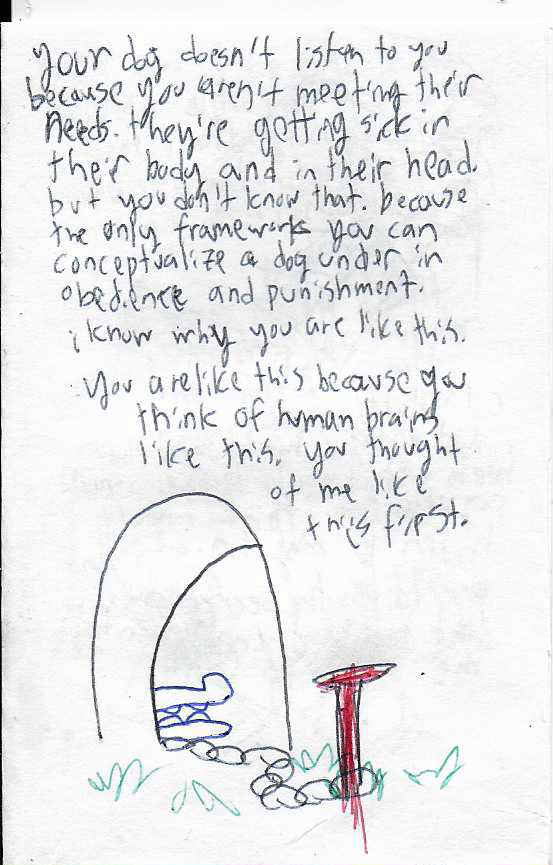 your dog doesn't listen to you
because you aren't meeting their
needs. they're getting sick in
their body and in their head.
but you don't know that. because
the only frameworks you can
conceptualize a dog under in
obedience and punishment.
i know why you are like this.
you are like this because you
think of human brains
like this. you thought
of me like
this first.